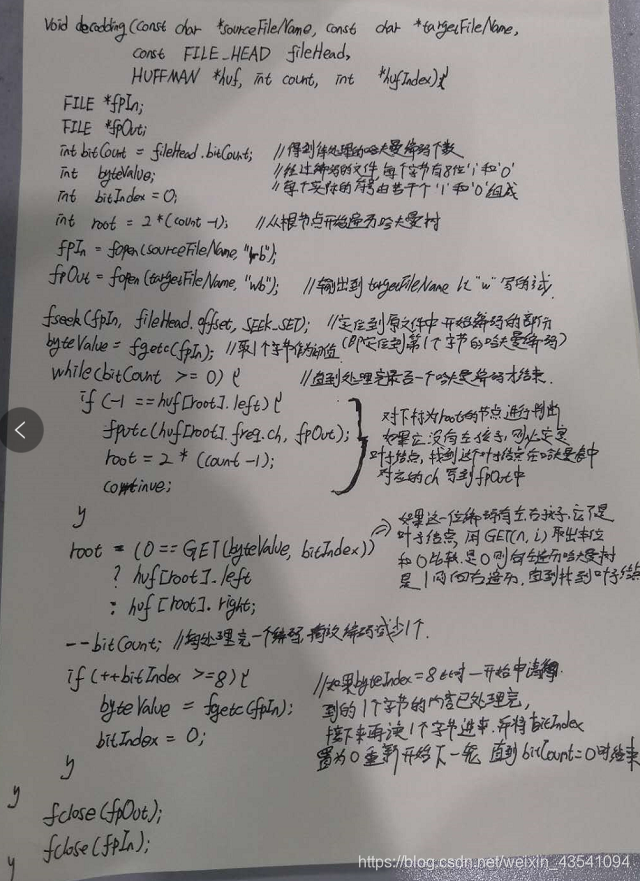 void decodding(const char *sourceFileName, const char *targetFileName,
const FILE_HEAD fileHead,
HUFFMAN *huf, int count, int *hufIndex){
FILE *fpIn;
FILE *fpOut;
int bitCount = fileHead.bitCount; //得到待处理的哈夫曼编码个数
int byteValue; //经过编码的文件每个字节有8位'1'和'0'
int bitIndex = 0; //每个实际的符号由若干个'1'和'0'组成
int root = 2*(count-1); //从根节点开始遍历哈夫曼树
fpIn = fopen(sourceFileName, "rb");
fpOut = fopen(targetFileName, "wb"); //输出到targetFileName 以"w"写的方式.
fseek(fpIn, fileHead.offset, SEEK_SET); //定位到原文件中开始编码的部分
byteValue = fgetc(fpIn); //取1个字节作为初值 (即定位到第1个字节的哈夫曼编码)
while(bitCount >= 0){ //直到处理完最后一个哈夫曼编码才结束.
if (-1 == huf[root].left){
fputc(huf[root].freq.ch, fpOut);
root = 2 * (count-1);
continue;
}
对下标为root的节点进行判断
如果它没有左孩子, 则它定是
叶子结点, 找到这个叶子结点在哈夫曼表中
对应的ch 写到fpOut中
root = (0 == GET(byteValue, bitIndex))
? huf[root].left
: huf[root].right;
如果这一位编码有左右孩子, 它不是
叶子结点, 用GET(n, i) 取出每位
和0比较, 是0则向左遍历哈夫曼树
是1则向右遍历, 直到找到叶子结点
--bitCount; //每处理完一个编码, 待设编码减少1个.
if (++bitIndex >=8){
byteValue = fgetc(fpIn);
bitIndex = 0;
}
//如果byteIndex = 8 时 一开始申请
到的1个字节的内容已处理完,
接下来再读1个字节进来. 并将bitIndex
置为0 重新开始下一轮 直到bitCount=0时结束
}
fclose(fpOut);
fclose(fpIn);
}
https://blog.csdn.net/weixin_43541094